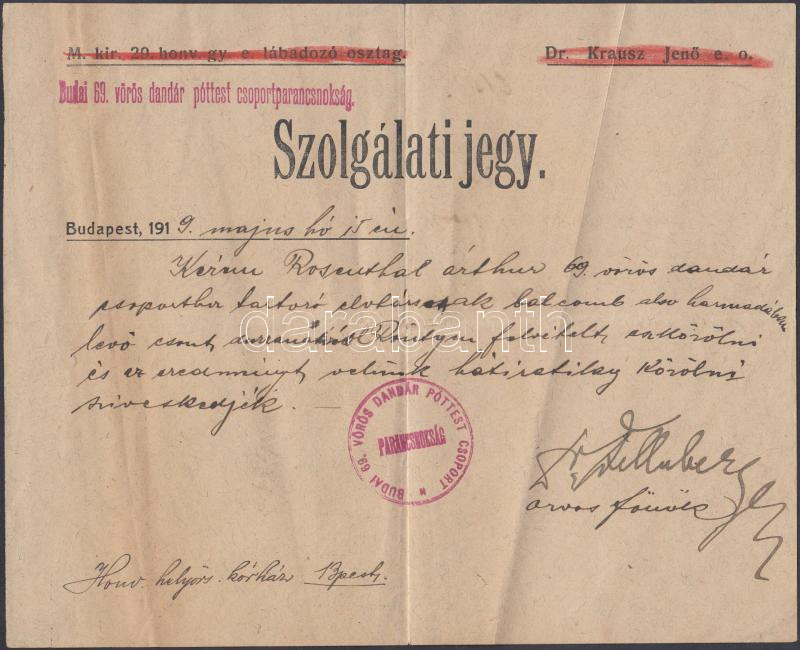 M. kir. 29. honv. gy. e. lábadozó osztag.
Dr. Krausz Jenő e. o.
Budai 69. vörös dandár póttest csoportparancsnokság.
Szolgálati jegy.
Budapest, 1919. majus hó 15 én.
Kérem Rosenthal árthur 69. vörös dandár
csoporthoz tartozó elvtársnak balcomb alsó harmadában
levő csont Röntgen felvételt eszközölni
és az eredményt velünk átiratilag közölni
sziveskedjék. —
BUDAI 69. VÖRÖS DANDÁR PÓTTEST CSOPORT
PARANCSNOKSÁG
Dr
orvos főnök
Honv. helyőrs. kórház Bpest.
darabanth